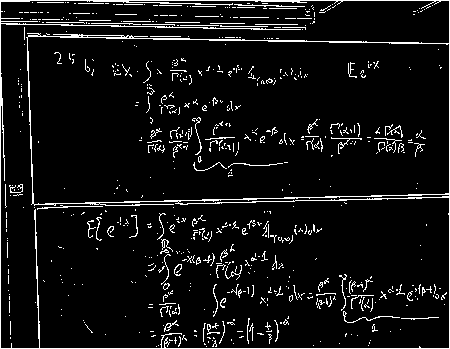 2.5 b) EX = ∫ x β^α/Γ(α) x^(α-1) e^(-βx) 1_(0,∞)(x) dx E e^(tX)
= ∫ β^α/Γ(α) x^α e^(-βx) dx
= β^α/Γ(α) Γ(α+1)/β^(α+1) ∫ β^(α+1)/Γ(α+1) x^α e^(-βx) dx = β^α/Γ(α) Γ(α+1)/β^(α+1) = αΓ(α)/Γ(α)β = α/β
1
E[e^(tX)] = ∫ e^(tx) β^α/Γ(α) x^(α-1) e^(-βx) 1_(0,∞)(x) dx
= ∫ e^(-x(β-t)) β^α/Γ(α) x^(α-1) dx
= β^α/Γ(α) ∫ e^(-x(β-t)) x^(α-1) dx = β^α/(β-t)^α ∫ (β-t)^α/Γ(α) x^(α-1) e^(-x(β-t)) dx
1
= β^α/(β-t)^α = ((β-t)/β)^(-α) = (1 - t/β)^(-α)